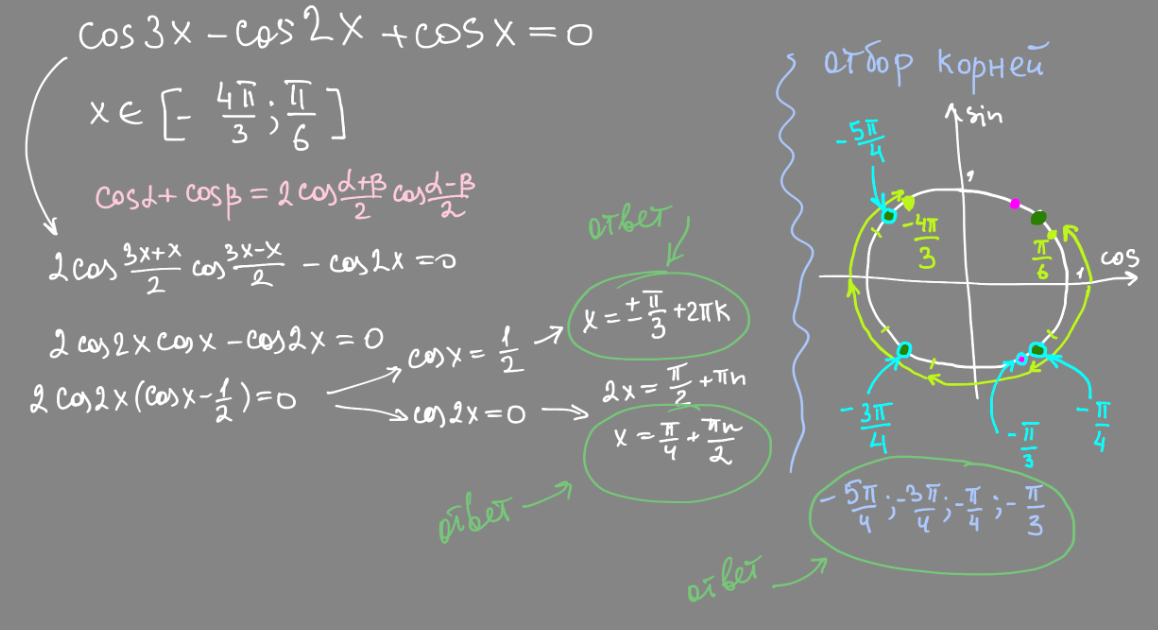 cos3x − cos2x + cosx = 0
x ∈ [− 4π/3 ; π/6]
cosα + cosβ = 2cos (α+β)/2 cos (α−β)/2
2cos (3x+x)/2 cos (3x−x)/2 − cos2x = 0
2cos2x cosx − cos2x = 0
2cos2x(cosx − 1/2) = 0
cosx = 1/2
cos2x = 0
ответ
x = ± π/3 + 2πk
2x = π/2 + πn
x = π/4 + πn/2
ответ
отбор корней
sin
− 5π/4
1
− 4π/3
π/6
1
cos
− 3π/4
− π/3
− π/4
− 5π/4 ; − 3π/4 ; − π/4 ; − π/3
ответ